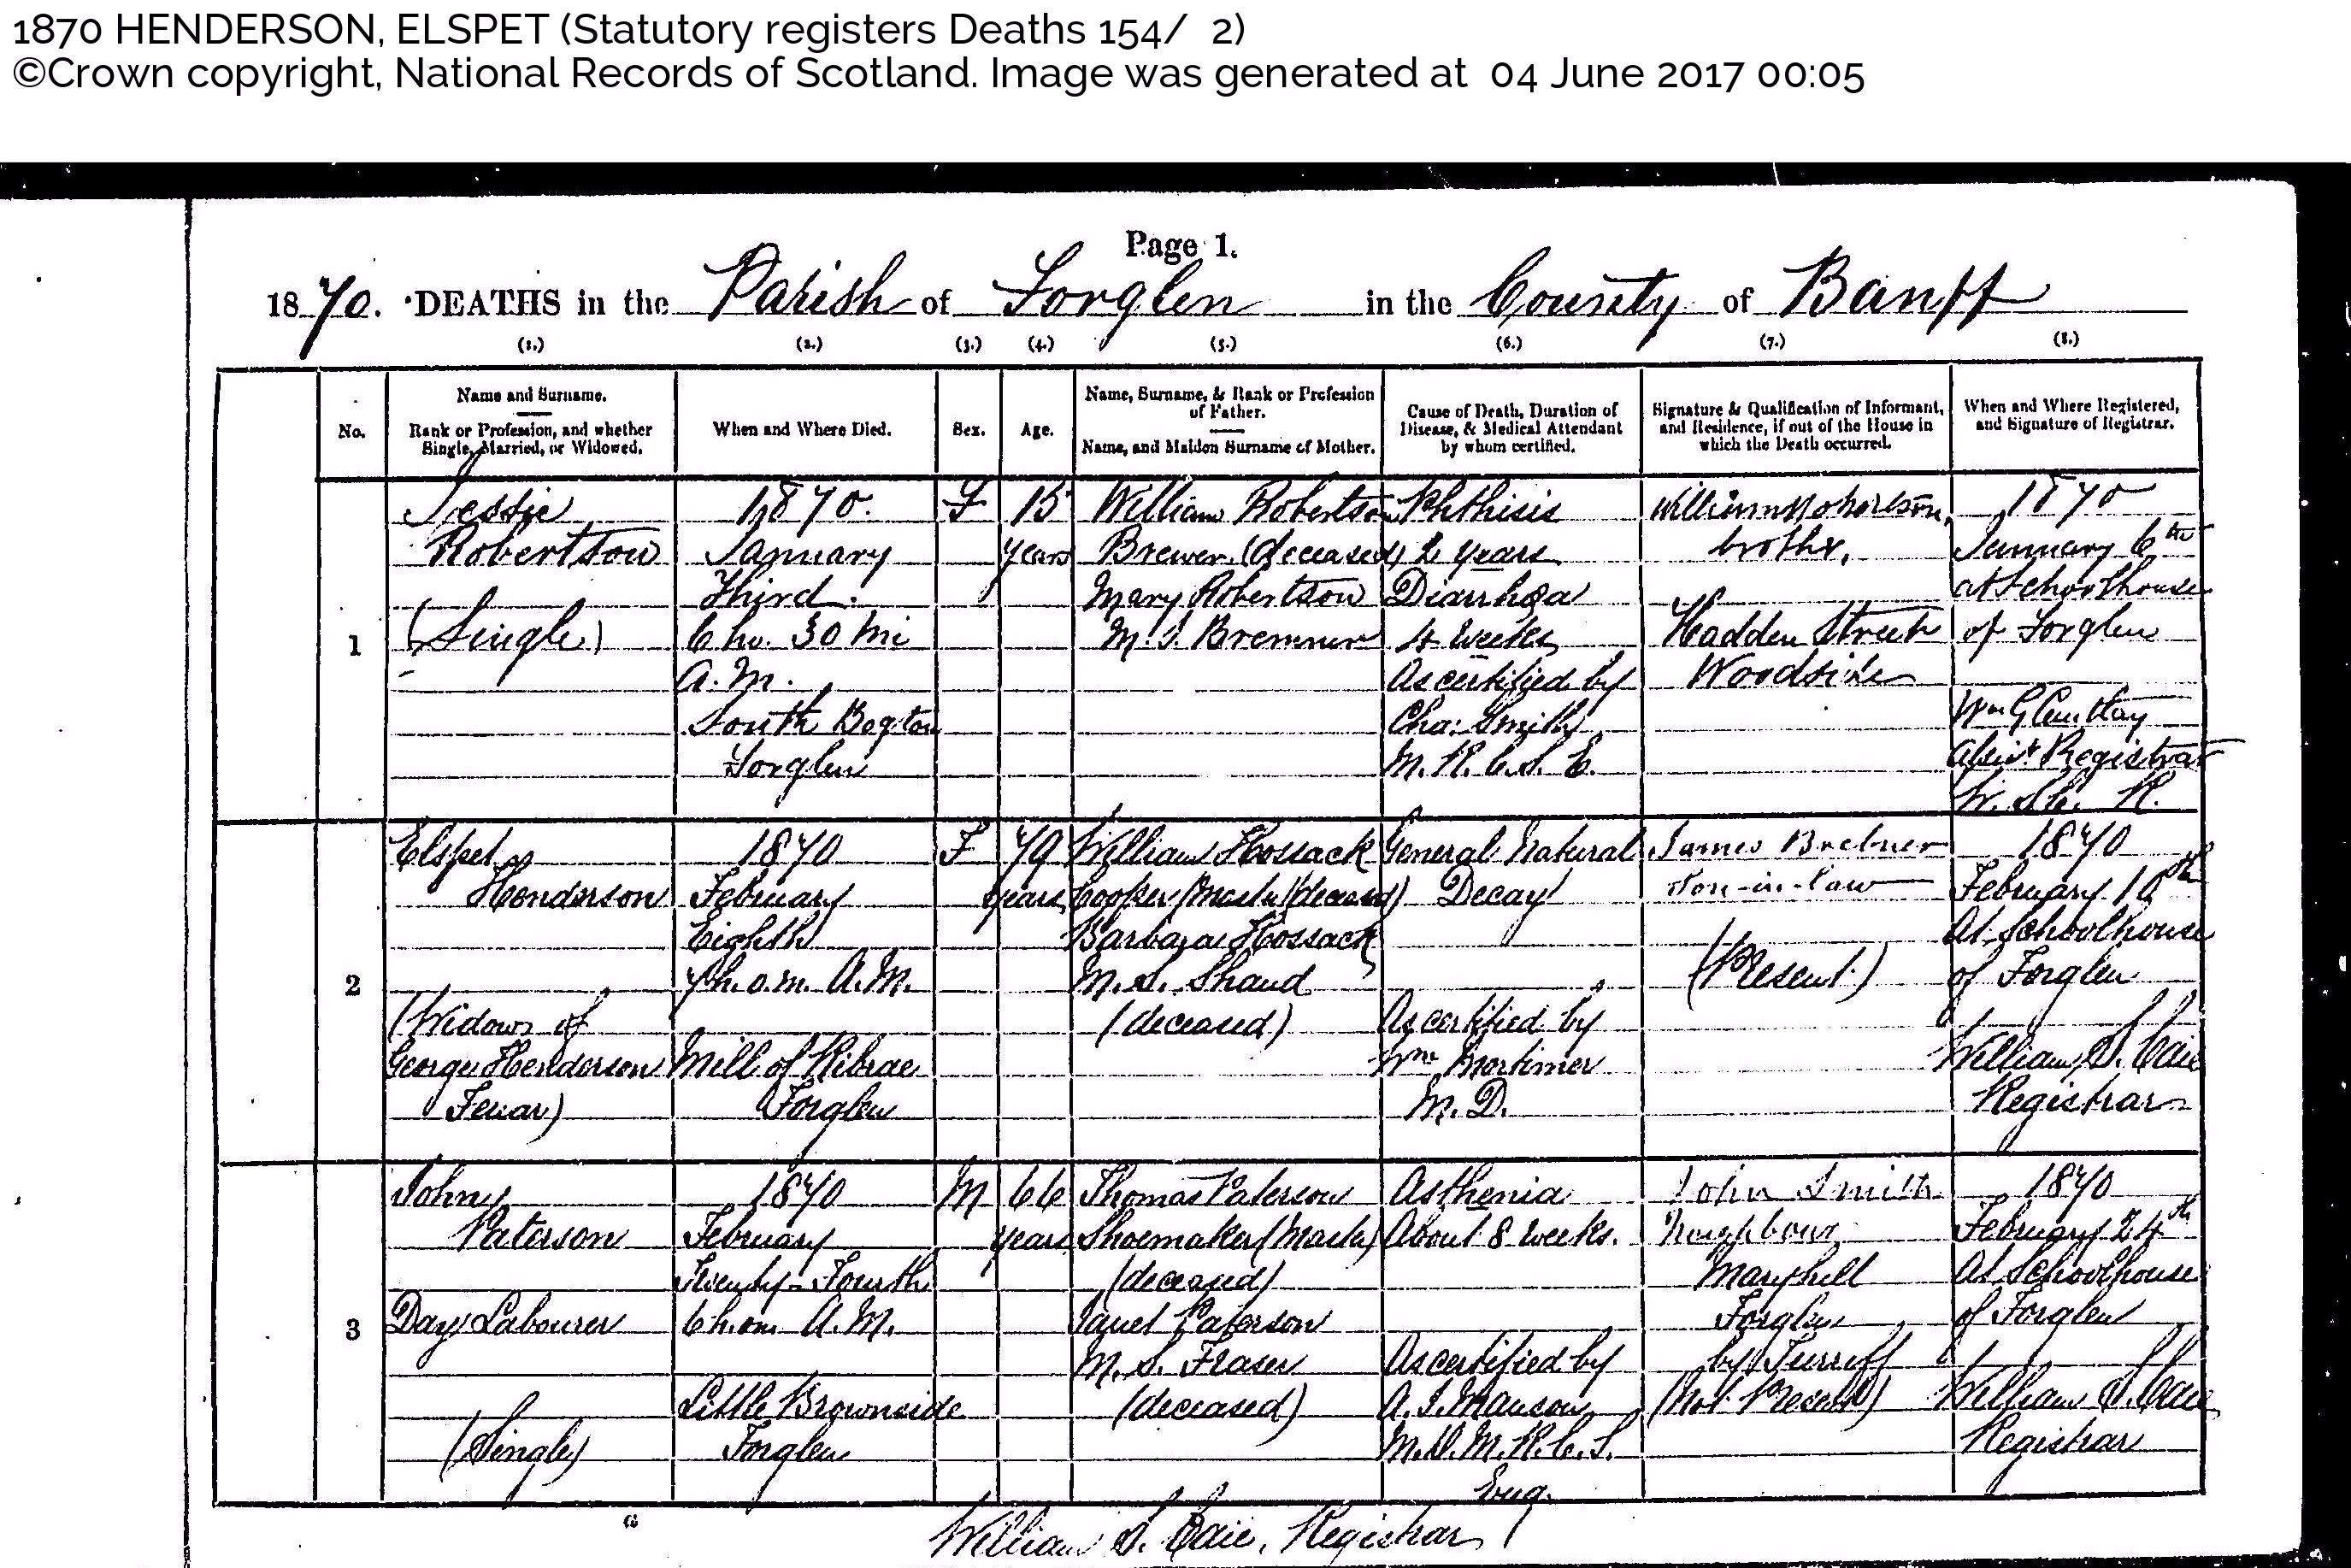 1870 HENDERSON, ELSPET (Statutory registers Deaths 154/ 2)
©Crown copyright, National Records of Scotland. Image was generated at 04 June 2017 00:05
Page 1.
1870. DEATHS in the Parish of Forglen in the County of Banff
(1.) (2.) (3.) (4.) (5.) (6.) (7.) (8.)
No.
Name and Surname.
Rank or Profession, and whether
Single, Married, or Widowed.
When and Where Died.
Sex.
Age.
Name, Surname, & Rank or Profession
of Father.
Name, and Maiden Surname of Mother.
Cause of Death, Duration of
Disease, & Medical Attendant
by whom certified.
Signature & Qualification of Informant,
and Residence, if out of the House in
which the Death occurred.
When and Where Registered,
and Signature of Registrar.
1
Jessie
Robertson
(Single)
1870.
January
Third.
6 ho. 30 mi
A.M.
South Bogton
Forglen
F
15
years
William Robertson
Brewer (deceased)
Mary Robertson
M.S. Bremner
Phthisis
2 years
Diarrhœa
4 Weeks
As certified by
Cha: Smith
M.R.C.S.E.
William Robertson,
brother,
Hadden Street
Woodside
1870
January 6th
at Schoolhouse
of Forglen
Wm
Assist. Registrar
W. S. C. R.
2
Elspet
Henderson
(Widow of
George Henderson
Feuar)
1870
February
Eighth
7h. 0.m. A.M.
Mill of Ribrae
Forglen
F
79
years
William Hossack
Cooper (Master) (deceased)
Barbara Hossack
M.S. Shand
(deceased)
General Natural
Decay
As certified by
Wm Mortimer
M.D.
James Brebner
Son-in-law
(Present.)
1870
February 10th
At Schoolhouse
of Forglen
William S. Caie
Registrar
3
John
Paterson
Day Labourer
(Single)
1870
February
Twenty-Fourth
6h. 0m. A.M.
Little Brownside
Forglen
M
66
years
Thomas Paterson
Shoemaker (Master)
(deceased)
Janet Paterson
M.S. Fraser
(deceased)
Asthenia
About 8 weeks.
As certified by
A. J. Manson
M.D. M.R.C.S.
Eng.
John Smith
Neighbour
Maryhill
Forglen
by Turriff
(Not Present)
1870
February 24th
At Schoolhouse
of Forglen
William S. Caie
Registrar
William S. Caie, Registrar